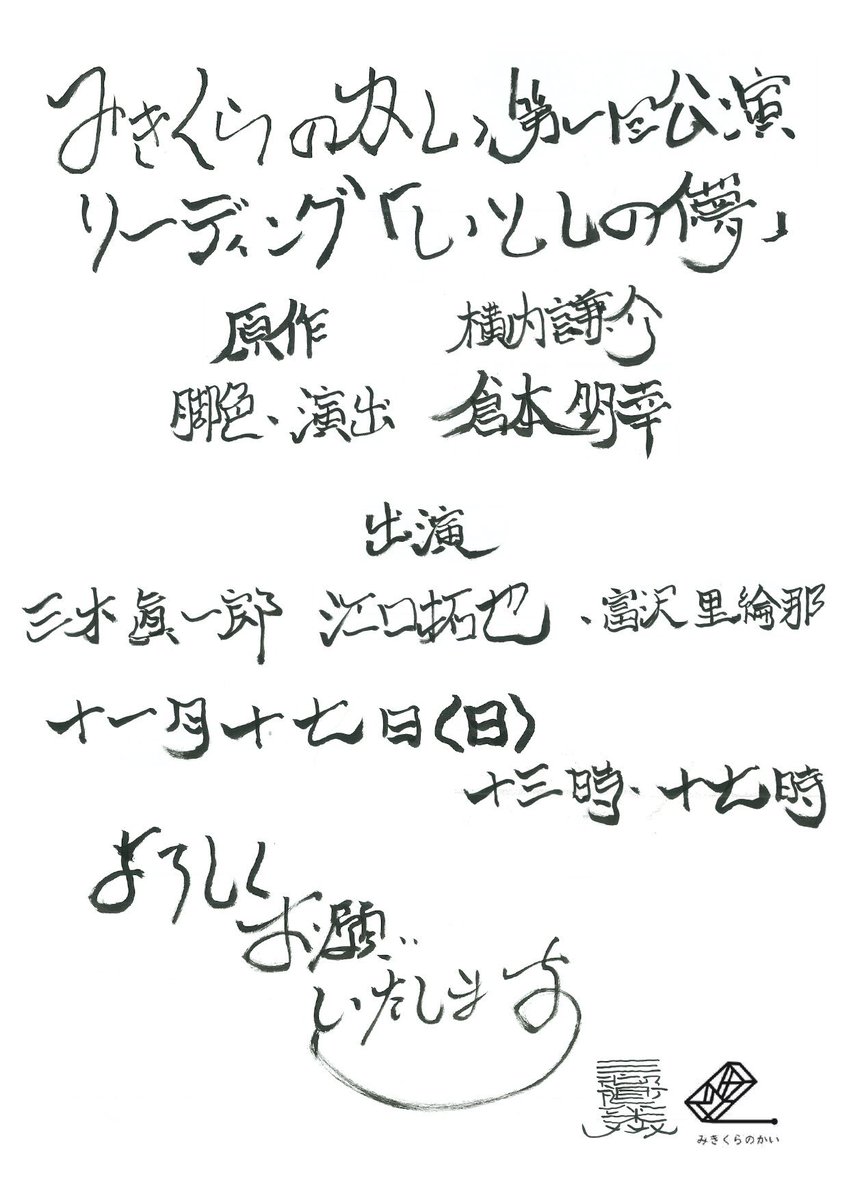 みきくらのかい 第一回公演
リーディング「いとしの儚」
原作 横内謙介
脚色、演出 倉本朋幸
出演
三木眞一郎 江口拓也、富沢里綸那
十一月十七日〈日〉
十三時・十七時
よろしく
お願い
いたします
みきくらのかい